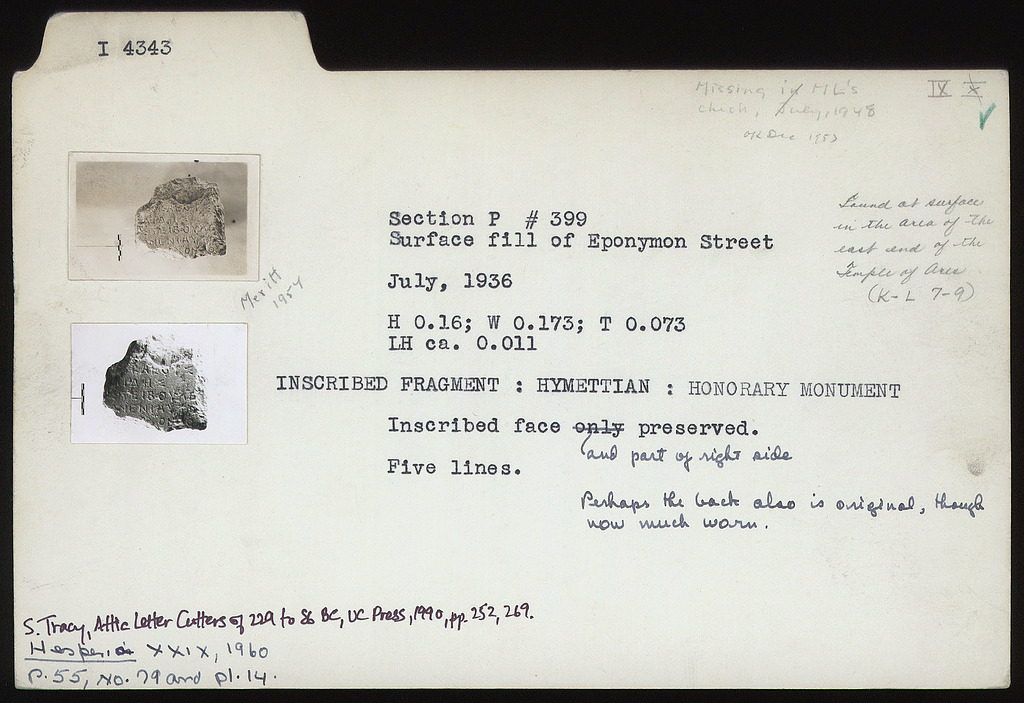 I 4343
Missing in ML's
check, July, 1948
OK Dec 1953
IX X
Section P # 399
Surface fill of Eponymon Street
Found at surface
in the area of the
east end of the
Temple of Ares
(K-L 7-9)
July, 1936
Meritt
1954
H 0.16; W 0.173; T 0.073
LH ca. 0.011
INSCRIBED FRAGMENT : HYMETTIAN : HONORARY MONUMENT
Inscribed face only preserved.
and part of right side
Five lines.
Perhaps the back also is original, though
now much worn.
S. Tracy, Attic Letter Cutters of 229 to 86 BC, UC Press, 1990, pp. 252, 269.
Hesperia XXIX, 1960
P. 55, no. 79 and pl. 14.